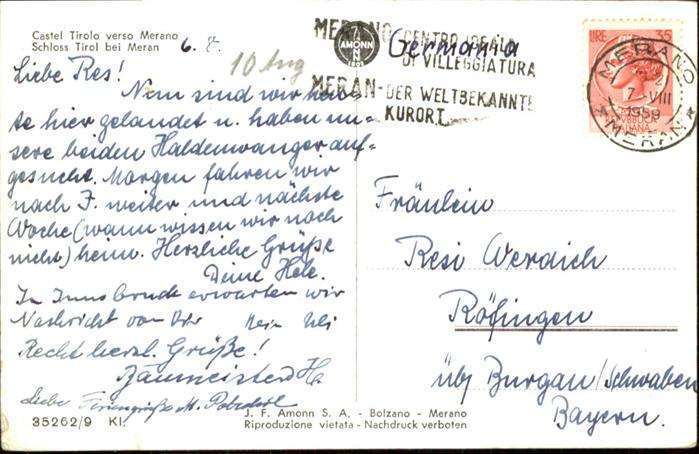 Castel Tirolo verso Merano
Schloss Tirol bei Meran
6. 8.
10 Aug
Germania
MERANO - CENTRO IDEALE
DI VILLEGGIATURA
MERAN - DER WELTBEKANNTE
KURORT
AMONN
LIRE 35
MERANO
7 - VIII
1959
* MERAN *
Liebe Res!
Nun sind wir heu-
te hier gelandet u. haben un-
sere beiden Haldenwanger auf-
gesucht. Morgen fahren wir
nach J. weiter und nächste
Woche (wann wissen wir noch
nicht) heim. Herzliche Grüße
Deine Hele.
In Innsbruck erwarten wir
Nachricht von
Recht herzl. Grüße!
Baumeister
Liebe Feriengrüße M.
Fräulein
Resi Werdich
Röfingen
üb/ Burgau/Schwaben
Bayern.
J. F. Amonn S. A. - Bolzano - Merano
Riproduzione vietata - Nachdruck verboten
35262/9 Kl.